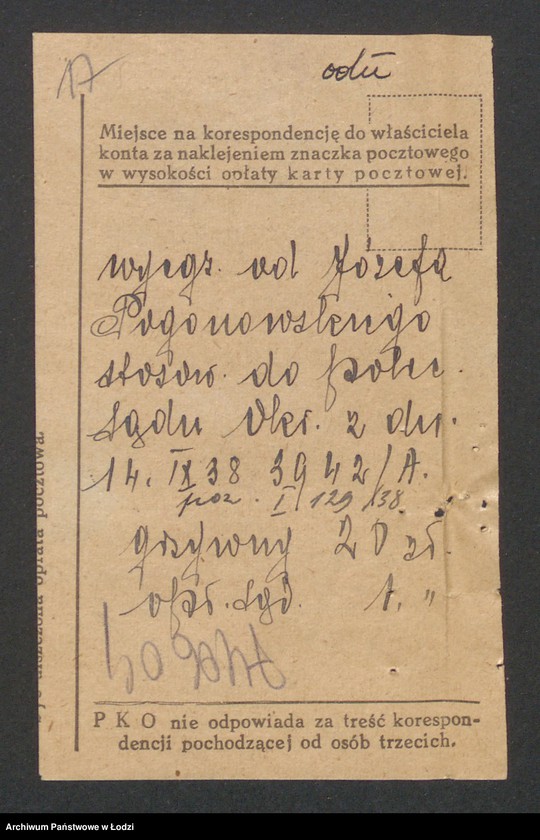 17
odu
Miejsce na korespondencję do właściciela
konta za naklejeniem znaczka pocztowego
w wysokości opłaty karty pocztowej.
wyegz. od Józefa
Pogonowskiego
stosow. do polec.
Sądu Okr. z dn.
14. IX 38 3942/A.
poz. I/129/38
grzywny 20 zł.
opł. sąd. 1. "
P K O nie odpowiada za treść korespon-
dencji pochodzącej od osób trzecich.
uiszczona opłata pocztowa.
Archiwum Państwowe w Łodzi